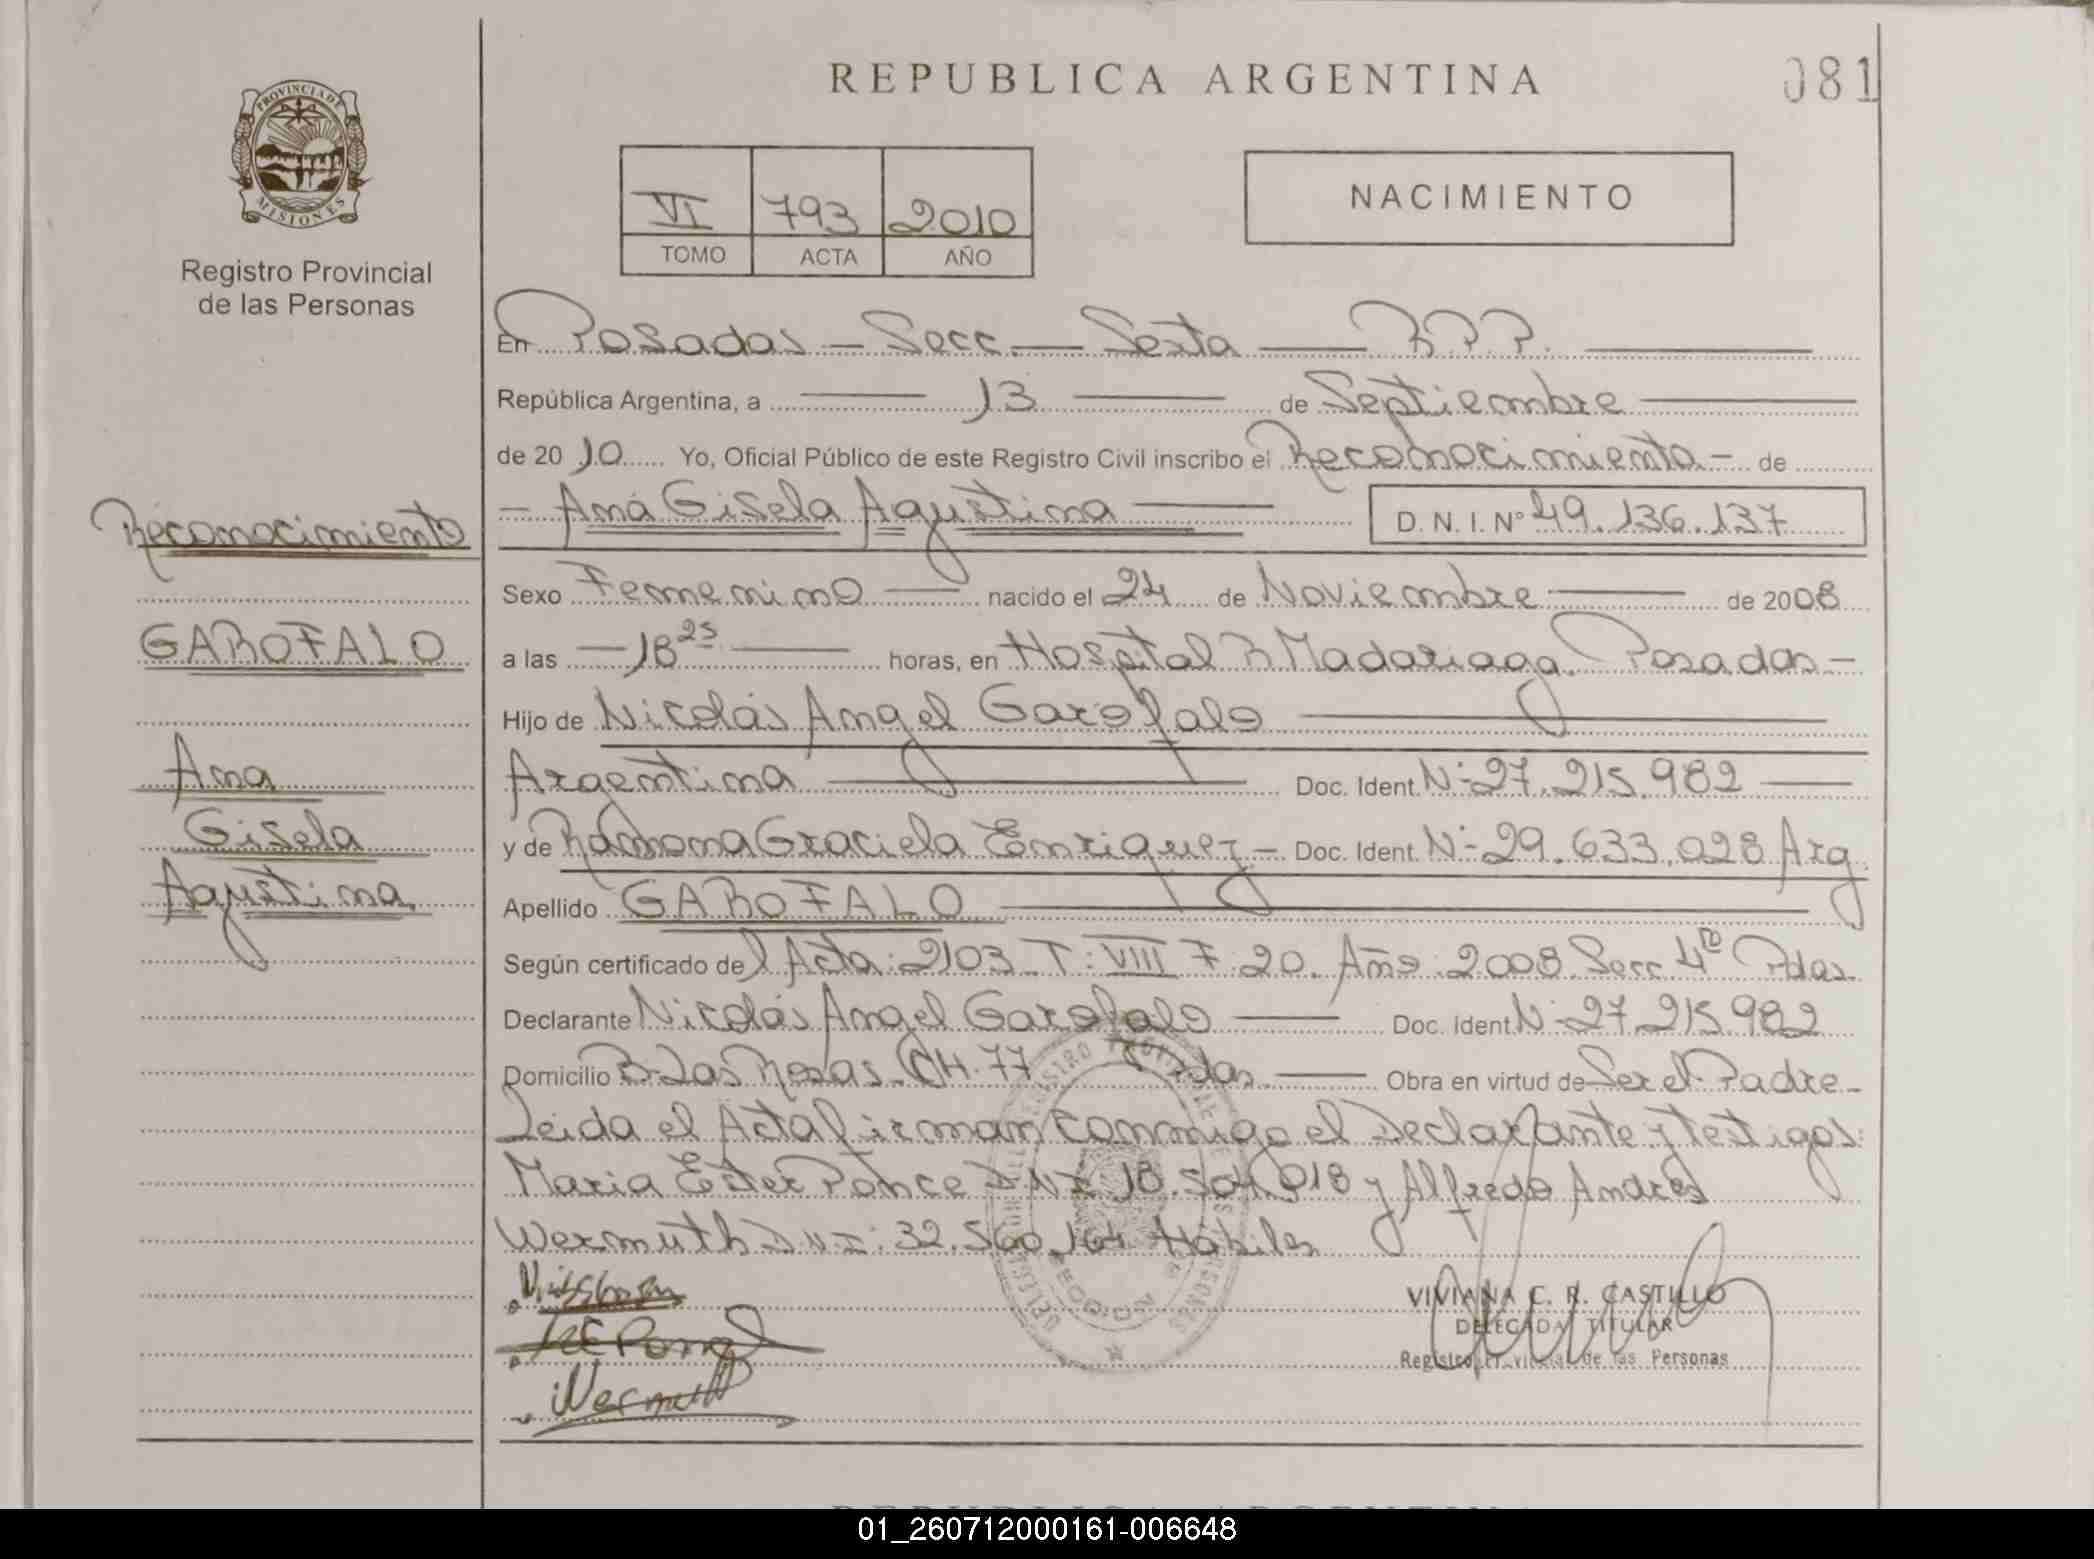 REPUBLICA ARGENTINA
081
PROVINCIA DE
MISIONES
Registro Provincial
de las Personas
VI 793 2010
TOMO ACTA AÑO
NACIMIENTO
En Posadas - Secc. - Sexta - R.P.P.
República Argentina, a 13 de Septiembre
de 2010 Yo, Oficial Público de este Registro Civil inscribo el Reconocimiento - de
- Ana Gisela Agustina D.N.I. Nº 49.136.137
Sexo Femenino nacido el 24 de Noviembre de 2008
a las - 18 25 horas, en Hospital R Madariaga. Posadas -
Hijo de Nicolás Angel Garofalo
Argentina Doc. Ident. Nº 27.215.982
y de Ramona Graciela Enriquez - Doc. Ident. Nº 29.633.028 Arg.
Apellido GAROFALO
Según certificado del Acta: 2103 T: VIII F: 20. Año: 2008 Secc 4ta Pdas.
Declarante Nicolás Angel Garofalo Doc. Ident. Nº 27.215.982
Domicilio Bº Las Rosas CH. 77 Pdas. Obra en virtud de Ser el Padre -
Leida el Acta firman conmigo el Declarante y testigos:
Maria Ester Ponce DNI 18.504.018 y Alfredo Andrés
Wermuth DNI: 32.560.164 Hábiles
Wermuth
VIVIANA C. R. CASTILLO
DELEGADA TITULAR
Registro Provincial de las Personas
Reconocimiento
GAROFALO
Ana
Gisela
Agustina
01_260712000161-006648